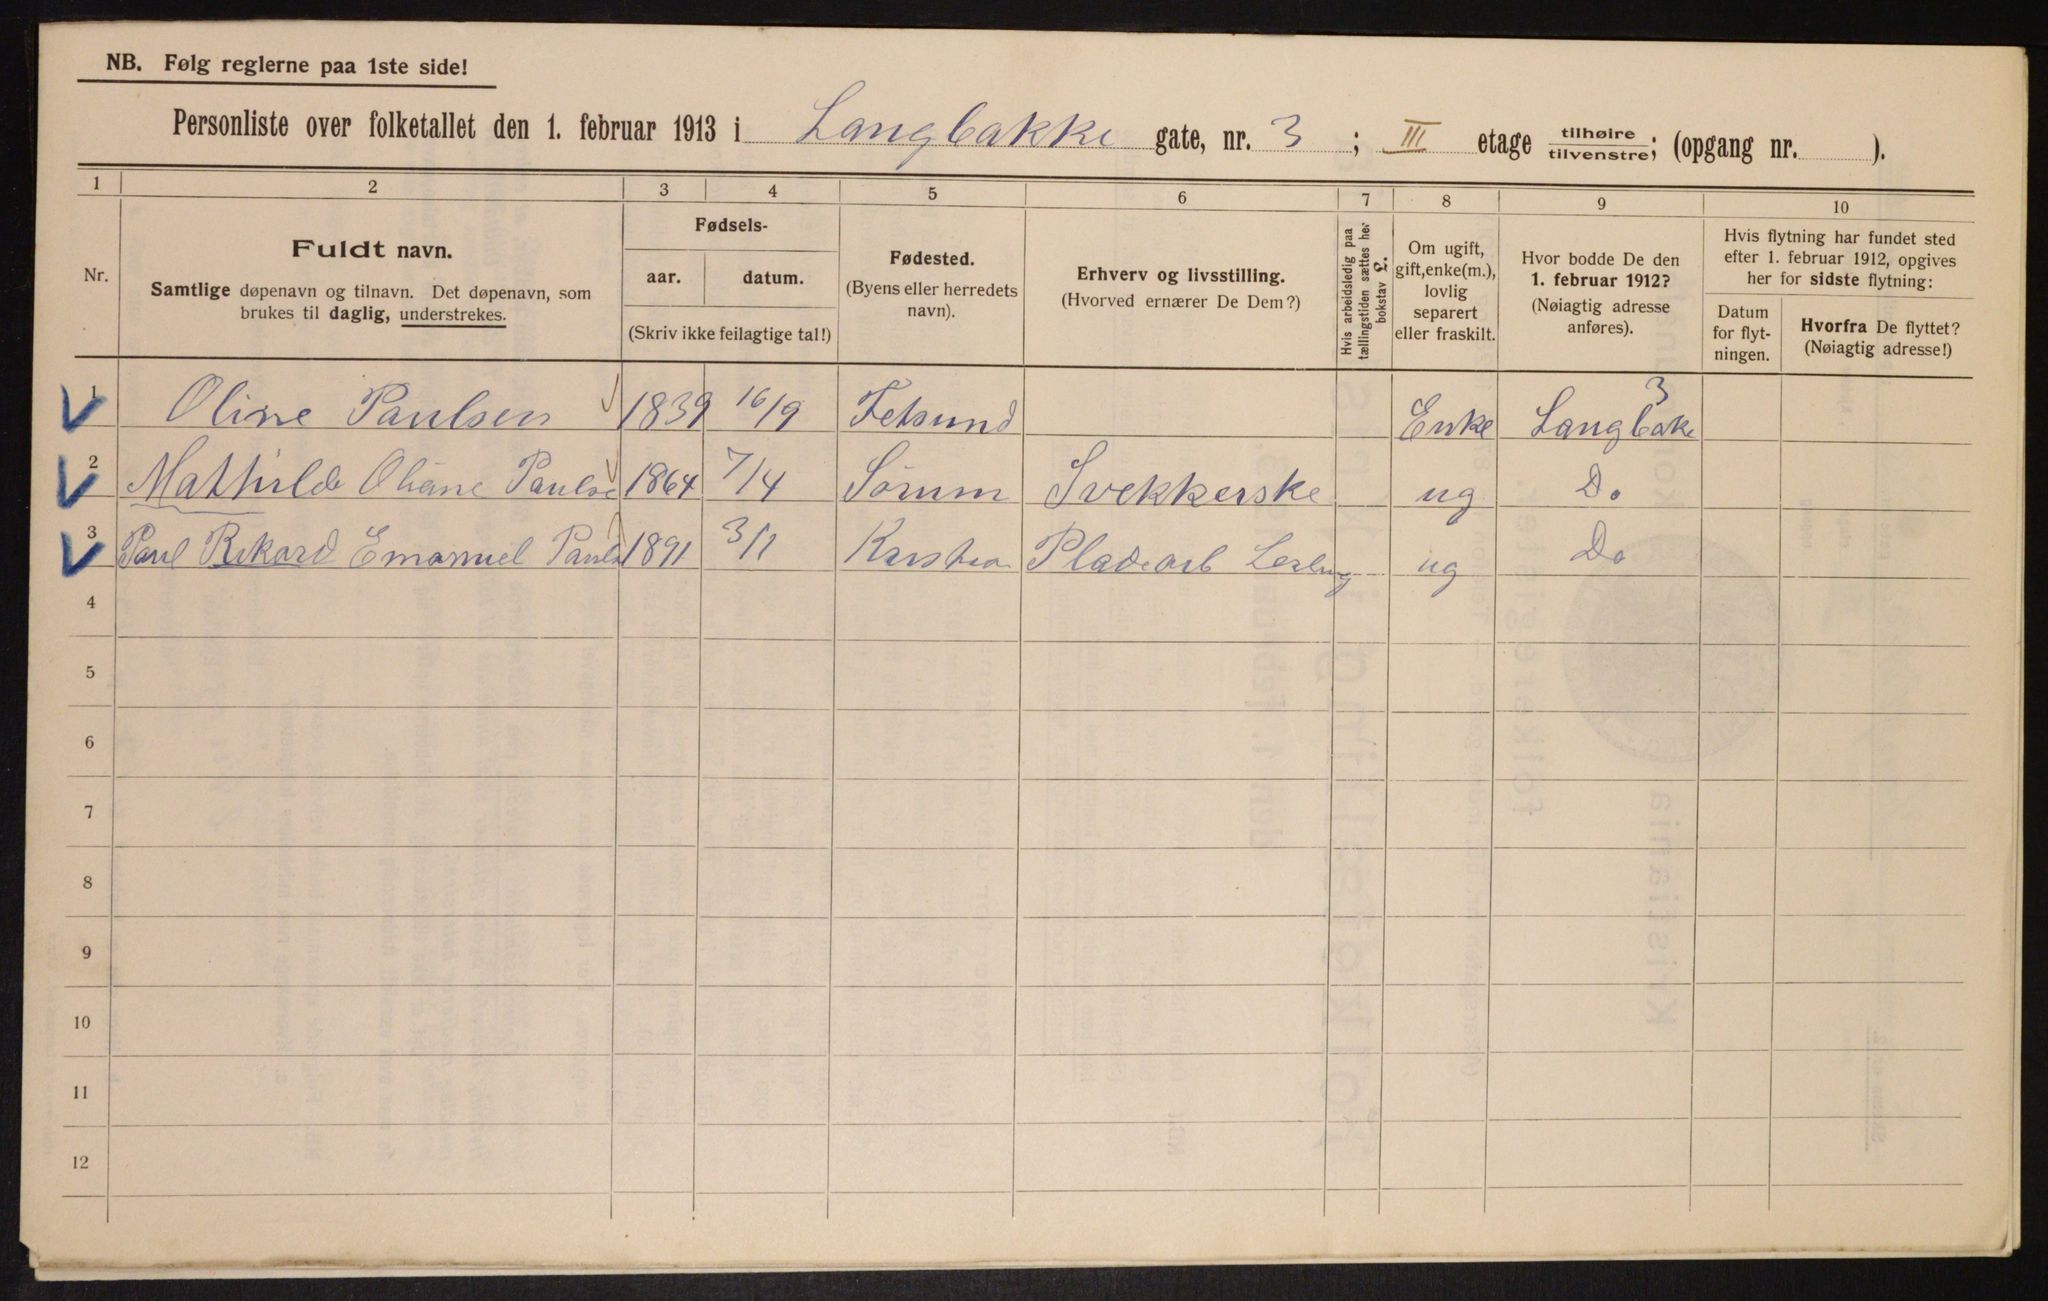 NB. Følg reglerne paa 1ste side!
Personliste over folketallet den 1. februar 1913 i Langbakke gate, nr. 3 ; III etage tilhøire/tilvenstre; (opgang nr. ).
1 2 3 4 5 6 7 8 9 10
Nr.
Fuldt navn.
Samtlige døpenavn og tilnavn. Det døpenavn, som
brukes til daglig, understrekes.
Fødsels-
aar. datum.
(Skriv ikke feilagtige tal!)
Fødested.
(Byens eller herredets
navn).
Erhverv og livsstilling.
(Hvorved ernærer De Dem?)
Hvis arbeidsledig paa
tællingstiden sættes her
bokstav L.
Om ugift,
gift, enke(m.),
lovlig
separert
eller fraskilt.
Hvor bodde De den
1. februar 1912?
(Nøiagtig adresse
anføres).
Hvis flytning har fundet sted
efter 1. februar 1912, opgives
her for sidste flytning:
Datum
for flyt-
ningen.
Hvorfra De flyttet?
(Nøiagtig adresse!)
1 Oline Paulsen 1839 16/9 Fetsund Enke Langbake 3
2 Mathilde Oliane Paulse 1864 7/4 Sørum Svekkerske ug Do
3 Paul Rikard Emanuel Pauls 1891 3/1 Pladearb ug Do
4
5
6
7
8
9
10
11
12